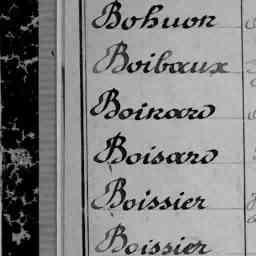 Bohuon
Boibaux
Boinard
Boisard
Boissier
Boissier